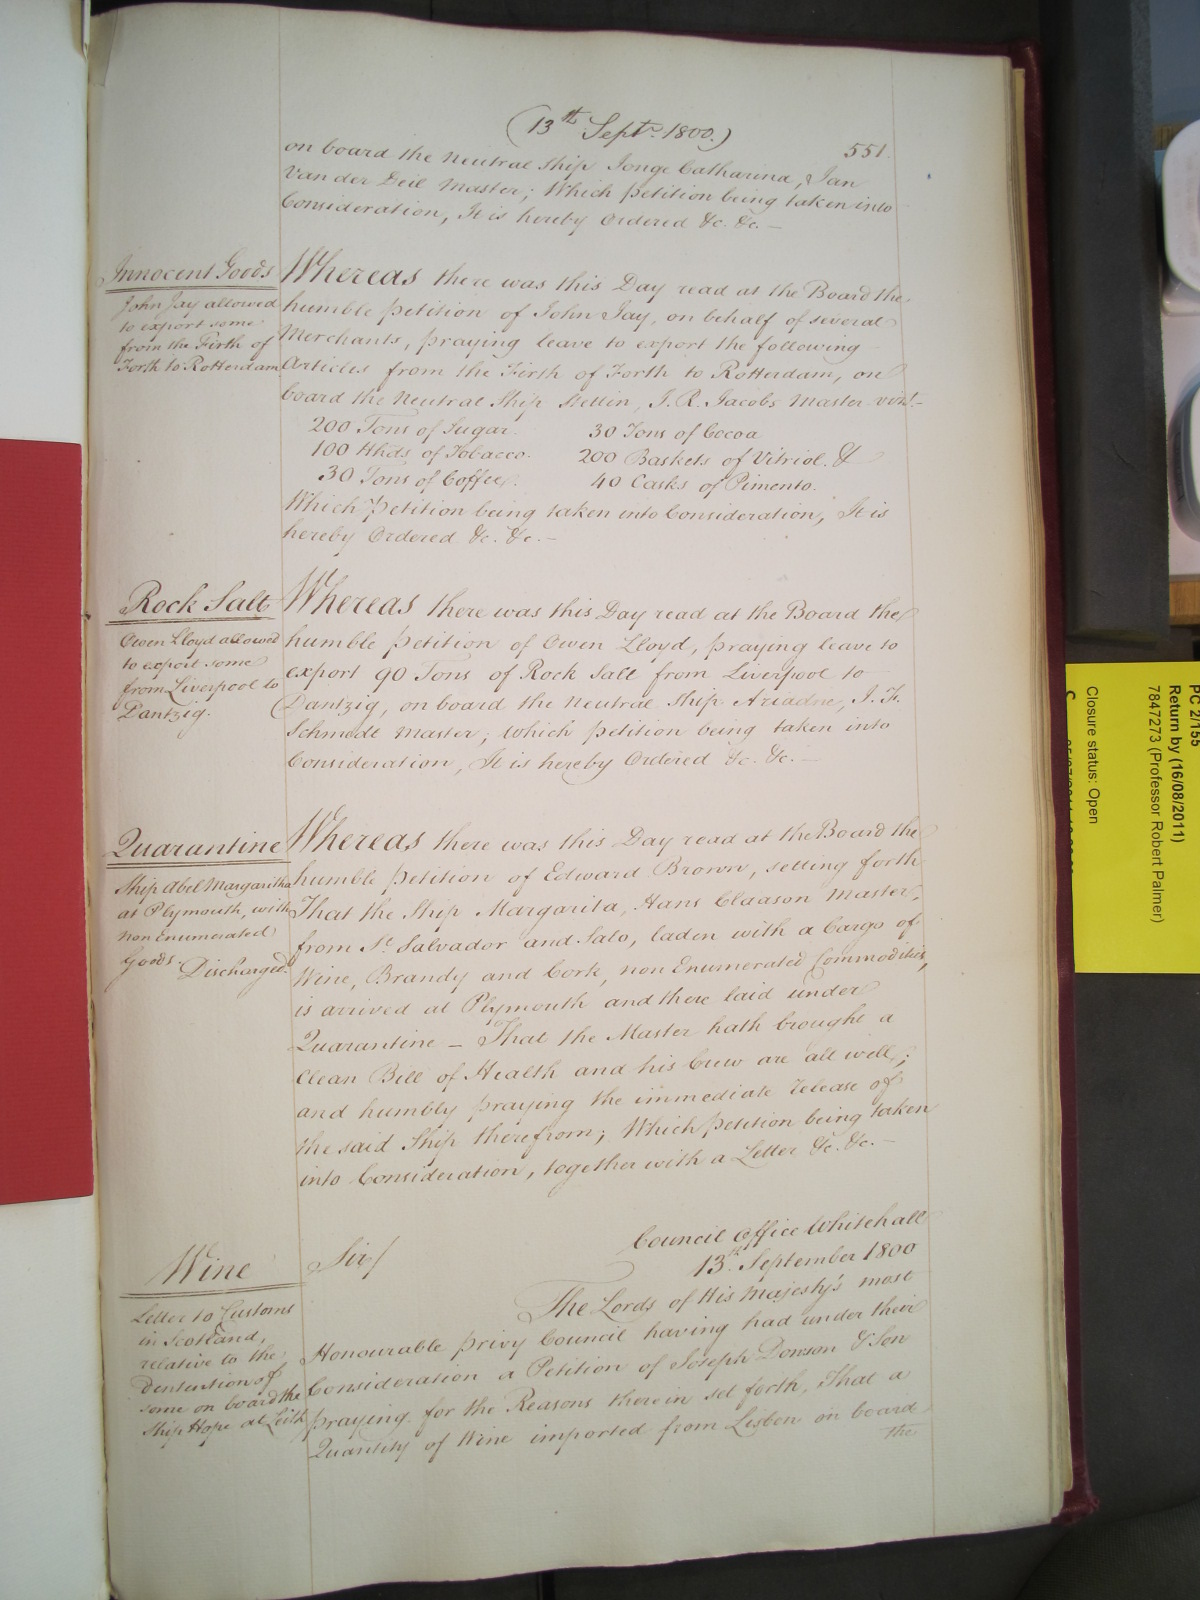 (13th Septr. 1800.)
551.
on board the Neutral Ship Jonge Catharina, Jan
Van der Deil Master; Which Petition being taken into
Consideration, It is hereby Ordered &c. &c. —
Innocent Goods
John Jay allowed
to export some
from the Firth of
Forth to Rotterdam
Whereas there was this Day read at the Board the
humble Petition of John Jay, on behalf of several
Merchants, praying leave to export the following
Articles from the Firth of Forth to Rotterdam, on
board the Neutral Ship Stettin, J. R. Jacobs Master vizt.
200 Tons of Sugar.
30 Tons of Cocoa
100 Hhds of Tobacco.
200 Baskets of Vitriol. &
30 Tons of Coffee.
40 Casks of Pimento.
Which Petition being taken into Consideration, It is
hereby Ordered &c. &c. —
Rock Salt
Owen Lloyd allowed
to export some
from Liverpool to
Dantzig.
Whereas there was this Day read at the Board the
humble Petition of Owen Lloyd, praying leave to
export 90 Tons of Rock Salt from Liverpool to
Dantzig, on board the Neutral Ship Ariadne, J. F.
Schmidt Master; which Petition being taken into
Consideration, It is hereby Ordered &c. &c. —
Quarantine
Ship Abel Margaritha
at Plymouth, with
non Enumerated
goods Discharged.
Whereas there was this Day read at the Board the
humble Petition of Edward Brown, setting forth
That the Ship Margarita, Hans Claason Master,
from St. Salvador and Salo, laden with a Cargo of
Wine, Brandy and Cork, non Enumerated Commodities,
is arrived at Plymouth and there laid under
Quarantine — That the Master hath brought a
Clean Bill of Health and his Crew are all well;
and humbly praying the immediate release of
the said Ship therefrom; Which Petition being taken
into Consideration, together with a Letter &c. &c. —
Wine
Letter to Customs
in Scotland,
relative to the
Dentention of
some on board the
Ship Hope at Leith
Council Office Whitehall
13th. September 1800
Sir/
The Lords of His Majesty's most
Honourable Privy Council having had under their
Consideration a Petition of Joseph Dowson & Son
praying for the Reasons therein set forth, That a
Quantity of Wine imported from Lisbon on board
the
PC 2/155
Return by (16/08/2011)
7847273 (Professor Robert Palmer)
Closure status: Open